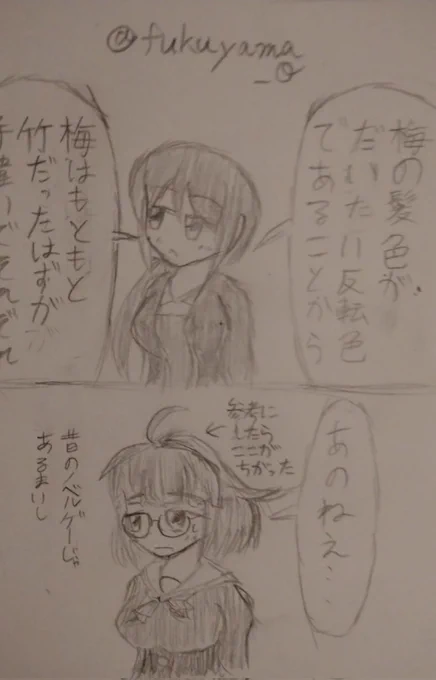 @fukuyama
_o
梅の髪色が
だいたい反転色
であることから
梅はもともと
竹だったはずが
手違いでそれぞれ
あのねえ…
参考に
したら
ここが
ちがった
昔のノベルゲーじゃ
あるまいし